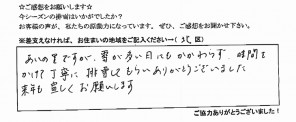 ☆ご感想をお願いします☆
今シーズンの排雪はいかがでしたか？
お客様の声が、私たちの原動力になっています。ぜひ、ご感想をお聞かせ下さい。
※差支えなければ、お住まいの地域をご記入ください→（北区）
あいの里ですが、雪が多い日にもかかわらず、時間を
かけて丁寧に排雪してもらいありがとうございました
来年も宜しくお願いします
ご協力ありがとうございました！